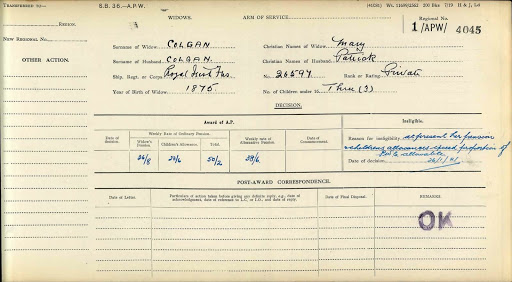 TRANSFERRED TO:—
S.B. 36.—A.P.W.
WIDOWS.
ARM OF SERVICE.
(44036) Wt. 11698/2562 200 Bks 7/19 H & J, Ld
REGION.
Regional No.
1/APW/ 4045
NEW REGIONAL NO.
Surname of Widow COLGAN
Christian Names of Widow Mary
OTHER ACTION.
Surname of Husband COLGAN.
Christian Names of Husband Patrick
Ship, Regt. or Corps Royal Innis. Fus.
No. 26597
Rank or Rating Private
Year of Birth of Widow 1875
No. of Children under 16 Three (3)
DECISION.
Award of A.P.
Ineligible.
Date of Decision.
Weekly Rate of Ordinary Pension.
Widow's Pension.
Children's Allowance.
Total.
Weekly rate of Alternative Pension.
Date of Commencement.
26/8
50/2
Reason for ineligibility at present her pension
& childrens allowances exceed proportion of
allowable
Date of decision
POST-AWARD CORRESPONDENCE.
Date of Letter.
Particulars of action taken before giving any definite reply, e.g., date of acknowledgment, date of reference to L.C., or I.O., and date of reply.
Date of Final Disposal.
REMARKS.
OK